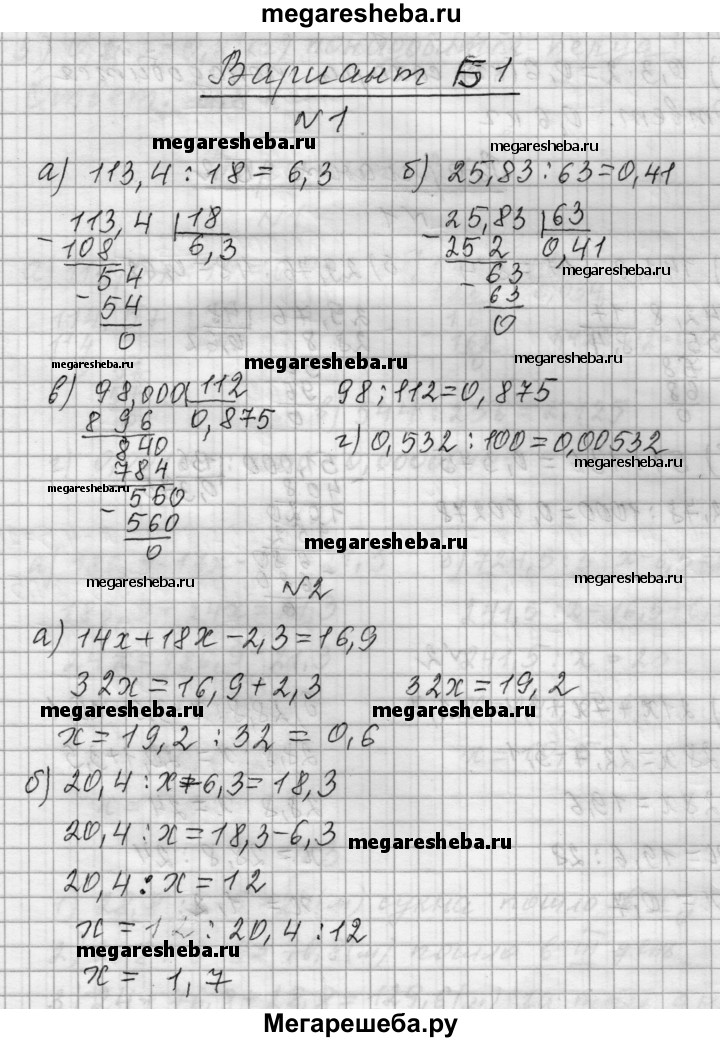 megaresheba.ru
Вариант Б1
№1
megaresheba.ru
megaresheba.ru
а) 113,4 : 18 = 6,3
б) 25,83 : 63 = 0,41
113,4 | 18
- 108 6,3
54
- 54
0
25,83 | 63
- 25 2 0,41
megaresheba.ru
63
- 63
0
megaresheba.ru
megaresheba.ru
megaresheba.ru
в) 98,000 | 112
8 96 0,875
840
784
megaresheba.ru
- 560
560
0
98 : 112 = 0,875
г) 0,532 : 100 = 0,00532
megaresheba.ru
megaresheba.ru
№2
megaresheba.ru
а) 14x + 18x - 2,3 = 16,9
32x = 16,9 + 2,3
32x = 19,2
megaresheba.ru
megaresheba.ru
x = 19,2 : 32 = 0,6
б) 20,4 : x + 6,3 = 18,3
20,4 : x = 18,3 - 6,3
megaresheba.ru
20,4 : x = 12
x = 12 : 20,4 : 12
megaresheba.ru
x = 1,7
Мегарешеба.ру